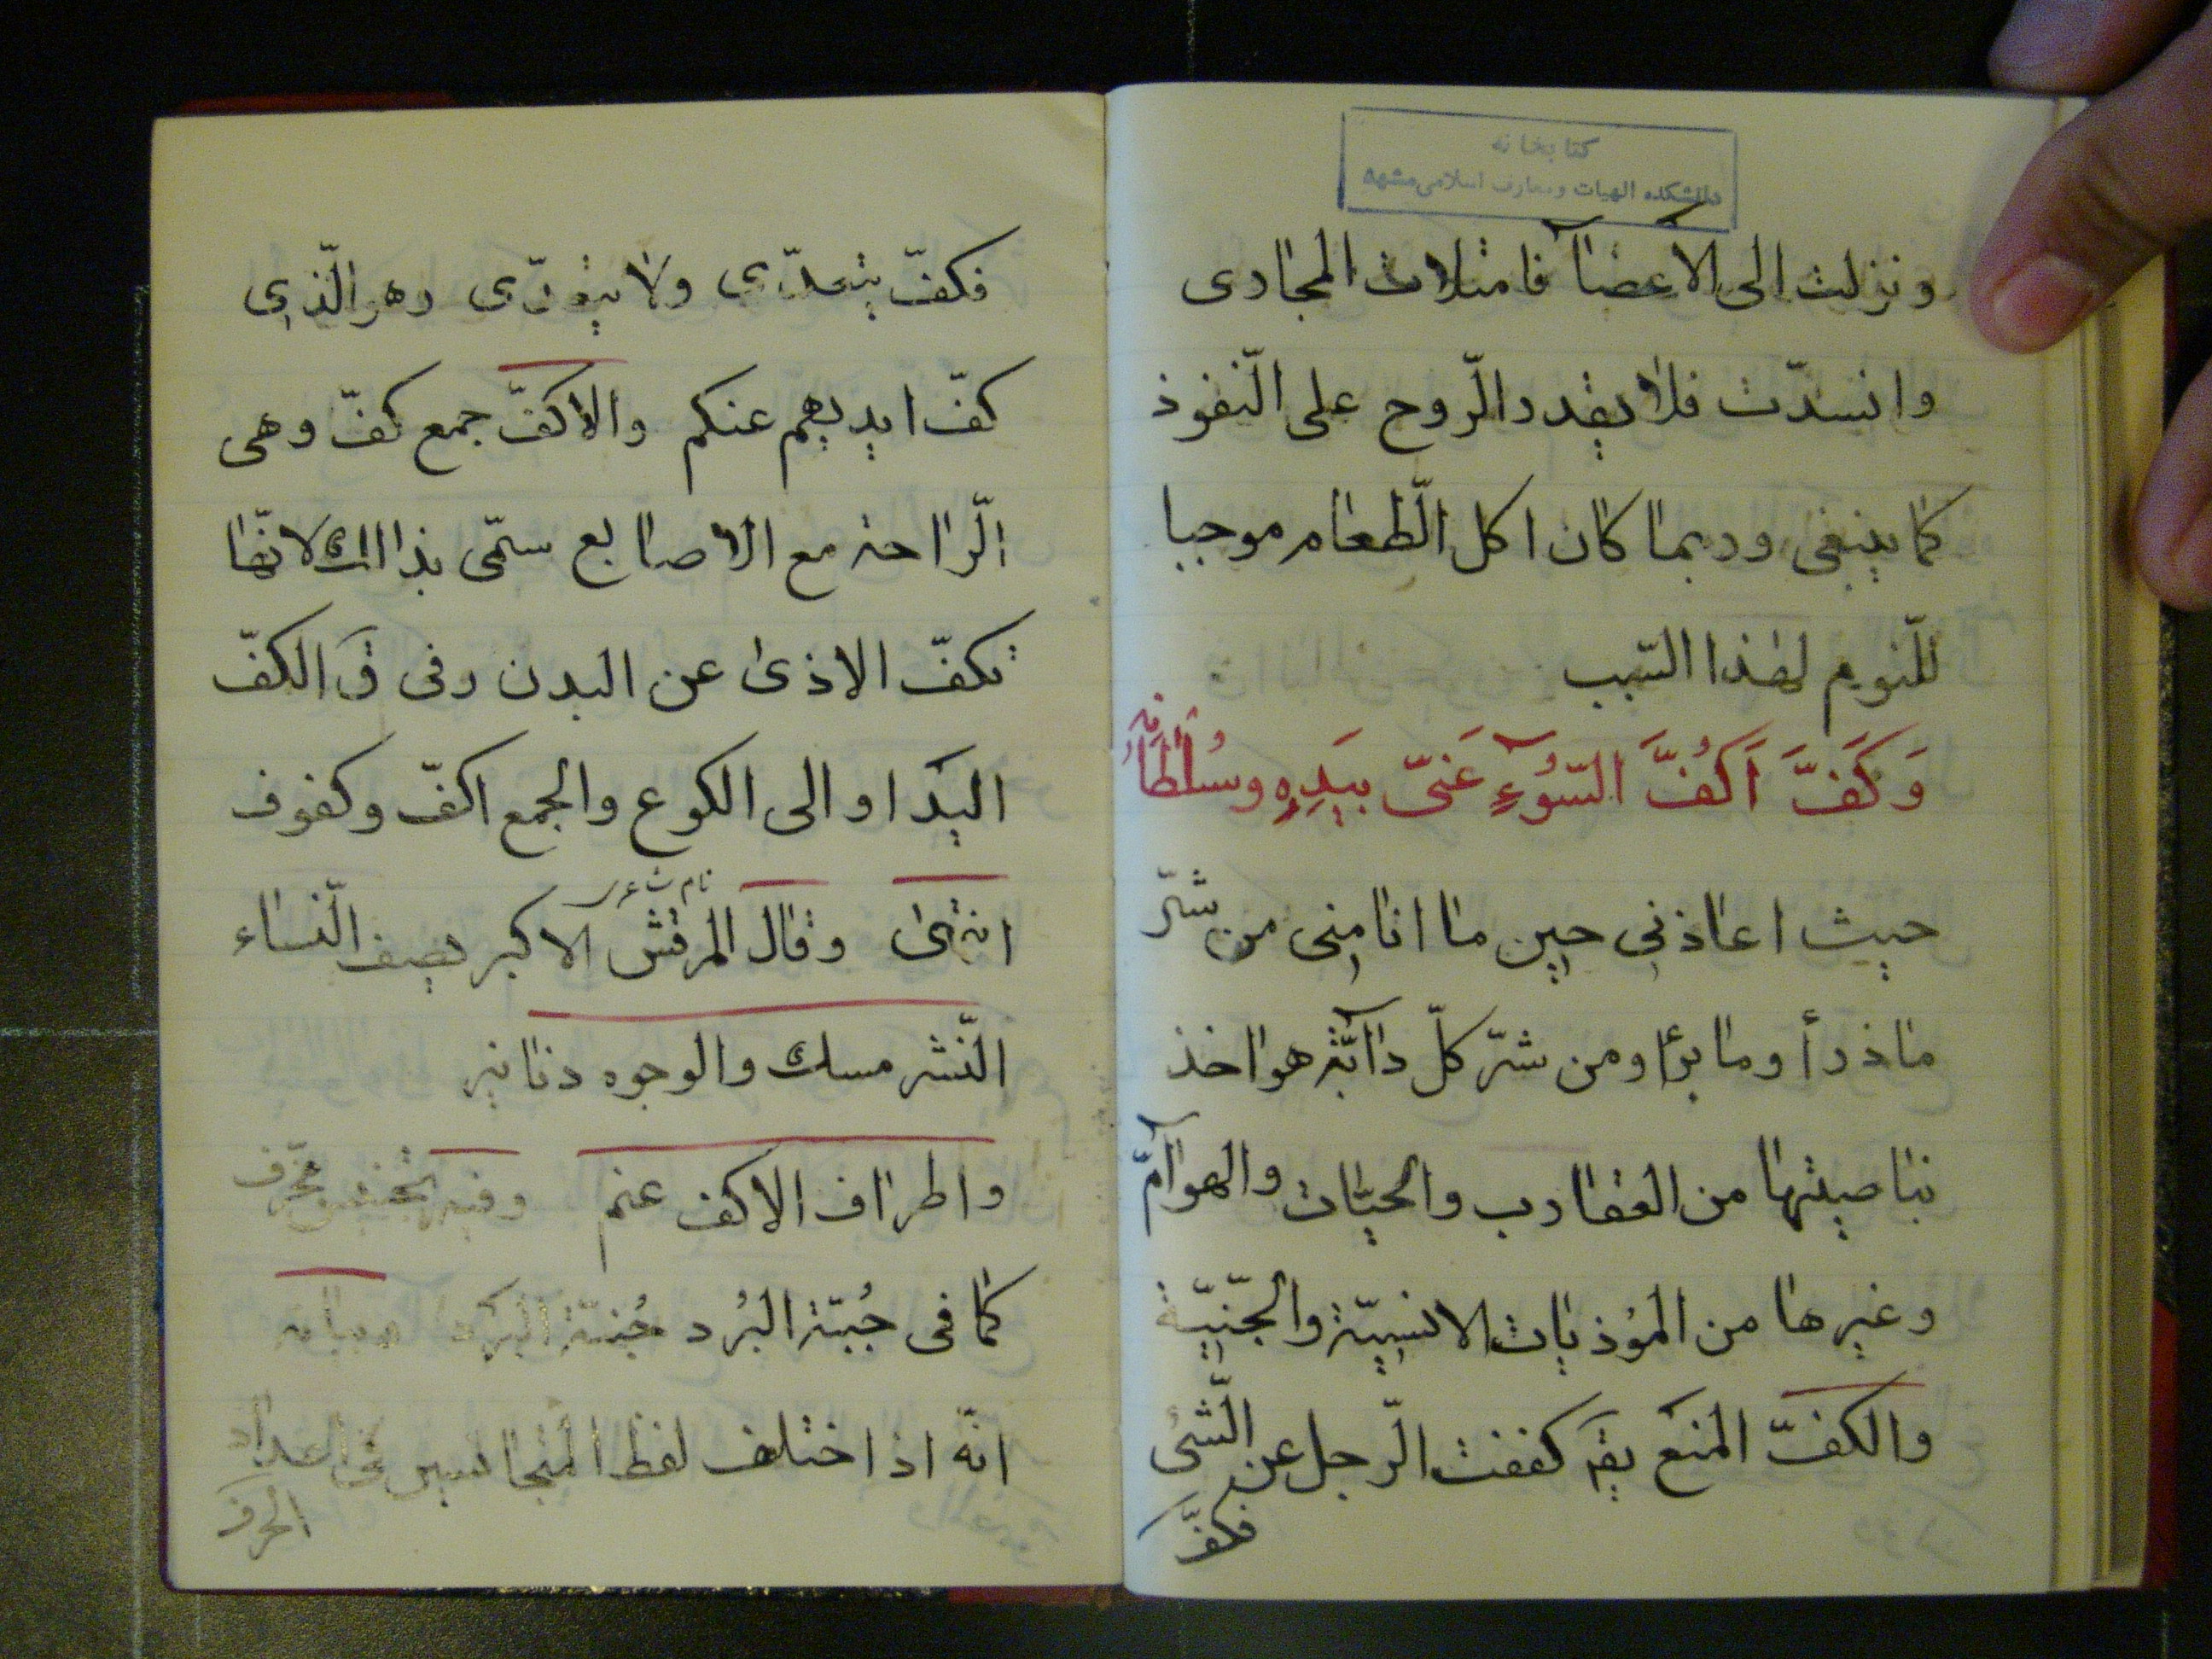 كتابخانه
دانشكده الهيات ومعارف اسلامى مشهد
ونزلت الى الاعضآ فامتلات المجارى
وانسدّت فلا يقدر الّروح على الّنفوذ
كما ينبغى وربما كان اكل الّطعام موجبا
للّنوم لهذا السّبب
وَكَفَّ اَكُفَّ السّوُءِ عَنىّ بِيَدِهِ وسُلْطَانِهِ
حيث اعاذنى حين ما انا منى من شرّ
ما ذرأ وما برأ ومن شرّ كلّ دآبّة هو اخذ
بناصيتها من العقارب والحيّات والهوآمّ
وغيرها من المؤذيات الانسيّة والجّنيّة
والكفّ المنع يقَ كففت الّرجل عن الّشىء
فكفّ
فكفّ يتعدّى ولا يتعدّى وهو الّذى
كفّ ايديهم عنكم والاكفّ جمع كفّ وهى
الّراحة مع الاصابع سمّى بذالك لانّها
تكفّ الاذى عن البدن وفى قَ الكفّ
اليَد او الى الكوع والجمع اكفّ وكفوف
نام شاعر
انتهى وقال المرقش الاكبر يصف الّنساء
الّنشر مسك والوجوه دنانير
واطراف الاكف عنم وفيه تجنيس محّرف
كما فى جُبّة البُرد جُنّة البَرد وبيانه
انّه اذا اختلف لفظ المتجانسين فى اعداد
الحرف